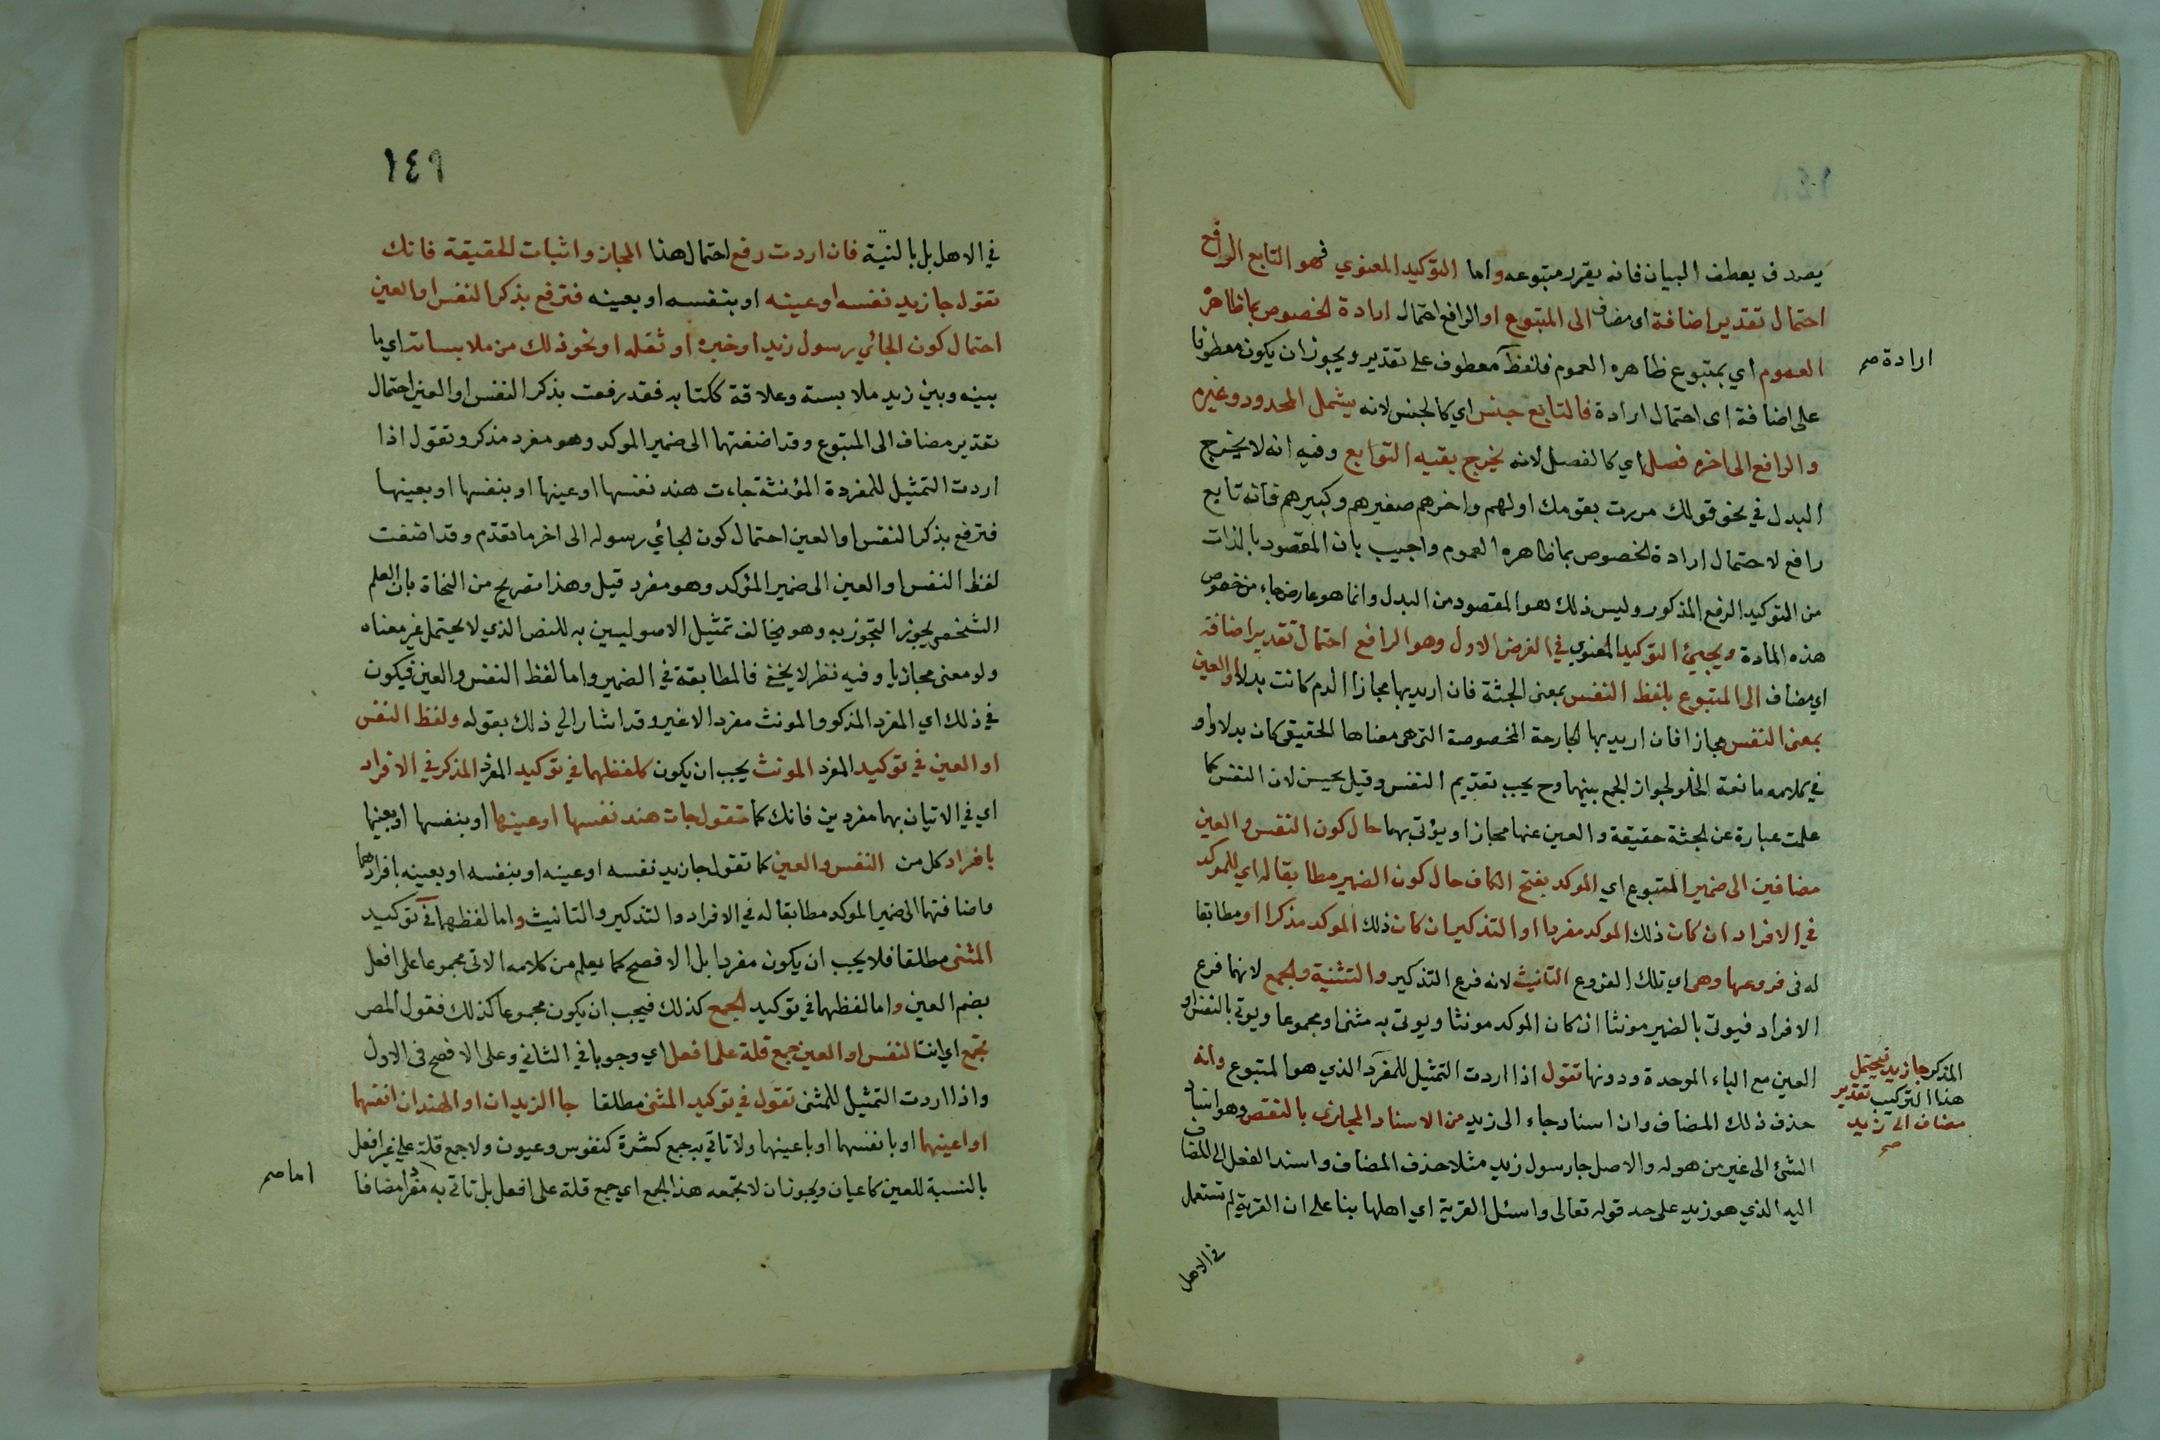 يصدف بعطف البيان فانه يقرر متبوعه واما التوكيد المعنوي فهو التابع الرافع
احتمال تقدير اضافة اي مضاف الى المتبوع او الرافع احتمال ارادة الخصوص بما ظاهره
العموم اي بمتبوع ظاهره العموم فلفظ معطوف على تقدير ويجوز ان يكون معطوفا
ارادة صح
على اضافة اى احتمال ارادة فالتابع جنس اي كالجنس لانه يشمل المحدود وغيره
والرافع الى اخره فصل اي كالفصل لانه يخرج بقيه التوابع وفيه انه لا يخرج
البدل في نحو قولك مررت بقومك اولهم واخرهم صغيرهم وكبيرهم فانه تابع
رافع لاحتمال ارادة الخصوص بما ظاهره العموم واجيب بان المقصود بالذات
من التوكيد الرفع المذكور وليس ذلك هو المقصود من البدل وانما هو عارض جاء من خصوص
هذه المادة ويجيئ التوكيد المعنوي في الغرض الاول وهو الرافع احتمال تقدير اضافة
اي مضاف الى المتبوع بلفظ النفس بمعنى الجثة فان اريد بها مجازا الدم كانت بدلا او العين
بمعنى النفس مجازا فان اريد بها الجارحة المخصوصة التي هي معناها الحقيقي كان بدلا واو
في كلامه مانعة الخلو لجواز الجمع بينهما وح يجب تقديم النفس وقيل يحسن لان النفس كما
علمت عبارة عن الجثة حقيقة والعين عنها مجازا ويؤتى بهما حال كون النفس والعين
مضافين الى ضمير المتبوع اي الموكد بفتح الكاف حال كون الضمير مطابقا له اي للموكد
في الافراد ان كان ذلك الموكد مفردا او التذكير ان كان ذلك الموكد مذكرا او مطابقا
له فى فروعها وهي اي تلك الفروع التانيث لانه فرع التذكير والتثنية والجمع لانهما فرع
الافراد فيوتى بالضمير مونثا ان كان الموكد مونثا ويوتى به مثنى او مجموعا ويوتى بالنفس او
العين مع الباء الموحدة ودونها تقول اذا اردت التمثيل للمفرد الذي هو المتبوع وانه
المذكر جا زيد فيحتمل
هذا التركيب تقدير
مضاف الى زيد
صح
حذف ذلك المضاف وان اسناد جاء الى زيد من الاسناد المجازى بالنقص وهو اسناد
الشئ الى غير من هو له والاصل جا رسول زيد مثلا حذف المضاف واسند الفعل الى المضاف
اليه الذي هو زيد على حد قوله تعالى واسئل القرية اي اهلها بنا على ان القرية لم تستعمل
في الاهل
١٤٩
في الاهل بل بالنية فان اردت رفع احتمال هذا المجاز واثبات الحقيقة فانك
تقول جا زيد نفسه او عينه او بنفسه او بعينه فترفع بذكر النفس او العين
احتمال كون الجائي رسول زيد او خبره او ثقله او نحو ذلك من ملابساته اي ما
بينه وبين زيد ملابسة وعلاقة ككتابه فقد رفعت بذكر النفس او العين احتمال
تقدير مضاف الى المتبوع وقد اضفتهما الى ضمير الموكد وهو مفرد مذكر وتقول اذا
اردت التمثيل للمفردة المؤنثة جاءت هند نفسها او عينها او بنفسها او بعينها
فترفع بذكر النفس او العين احتمال كون الجائي رسوله الى اخر ما تقدم وقد اضفت
لفظ النفس او العين الى ضمير المؤكد وهو مفرد قيل وهذا تصريح من النحاة بان العلم
الشخصي يجوز التجوز به وهو مخالف تمثيل الاصوليين به للنص الذي لا يحتمل غير معناه
ولو معنى مجازيا وفيه نظر لا يخفى فالمطابقة في الضمير واما لفظ النفس والعين فيكون
في ذلك اي المفرد المذكر والمونث مفردا لا غير وقد اشار الى ذلك بقوله ولفظ النفس
او العين في توكيد المفرد المونث يجب ان يكون كلفظهما في توكيد المفرد المذكر في الافراد
اي في الاتيان بهما مفردين فانك كما تقول جات هند نفسها او عينها او بنفسها او بعينها
بافراد كل من النفس والعين كما تقول جا زيد نفسه او عينه او بنفسه او بعينه بافرادهما
واضافتهما الى ضمير الموكد مطابقا له في الافراد والتذكير والتانيث واما لفظهما في توكيد
المثنى مطلقا فلا يجب ان يكون مفردا بل الافصح كما يعلم من كلامه الاتي مجموعا على افعل
بضم العين واما لفظهما في توكيد الجمع كذلك فيجب ان يكون مجموعا كذلك فقول المص
تجمع اي انت النفس او العين جمع قلة على افعل اي وجوبا في الثاني وعلى الافصح فى الاول
واذا اردت التمثيل للمثنى تقول في توكيد المثنى مطلقا جا الزيدان او الهندان انفسهما
او اعينهما او بانفسهما او باعينهما ولا تاتي به جمع كثرة كنفوس وعيون ولا جمع قلة على غير افعل
بالنسبة للعين كاعيان ويجوز ان لا تجمعه هذا الجمع اي جمع قلة على افعل بل تاتى به مفردا مضافا
اما صح